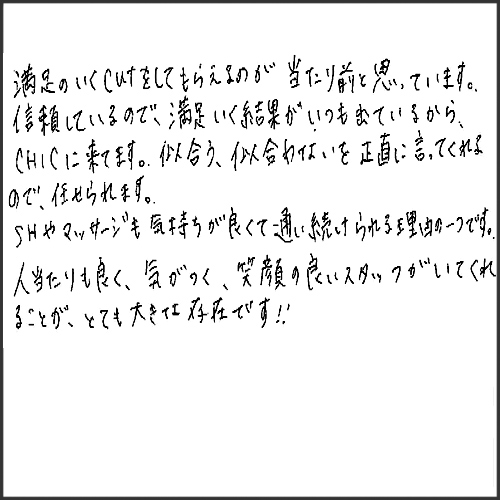 満足のいくCutをしてもらえるのが 当たり前と思っています。
信頼しているので、満足いく結果がいつも出ているから、
CHICに来てます。似合う、似合わないを正直に言ってくれる
ので、任せられます。
SHやマッサージも気持ちが良くて通い続けられる理由の一つです。
人当たりも良く、気がつく、笑顔の良いスタッフがいてくれ
ることが、とても大きな存在です!!